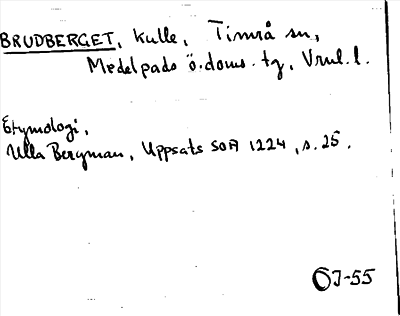 BRUDBERGET, kulle, Timrå sn,
Medelpads ö. doms. tg, Vnul. l.
Etymologi,
Ulla Bergman, Uppsats SOA 1224, s. 25.
OJ-55